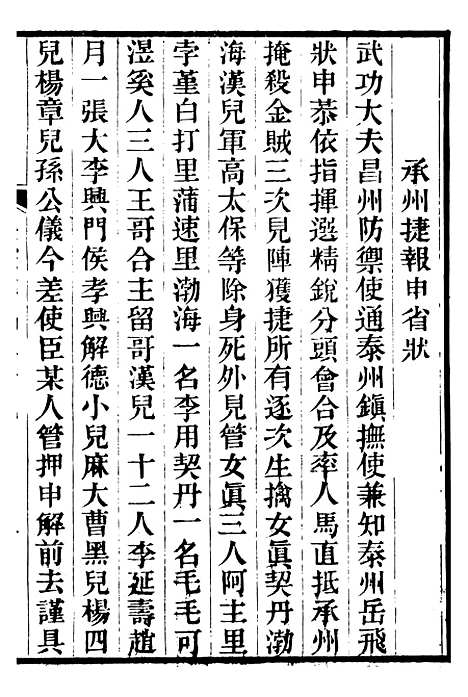 承州捷報申省狀
武功大夫昌州防禦使通泰州鎮撫使兼知泰州岳飛
狀申恭依指揮選精銳分頭會合及率人馬直抵承州
掩殺金賊三次見陣獲捷所有逐次生擒女眞契丹渤
海漢兒軍高太保等除身死外見管女眞三人阿主里
孛堇白打里蒲速里渤海一名李用契丹一名毛毛可
奚人三人王哥合主留哥漢兒一十二人李延壽趙
月一張大李興門侯孝興解德小兒麻大曹黑兒楊四
兒楊章兒孫公儀今差使臣某人管押申解前去謹具